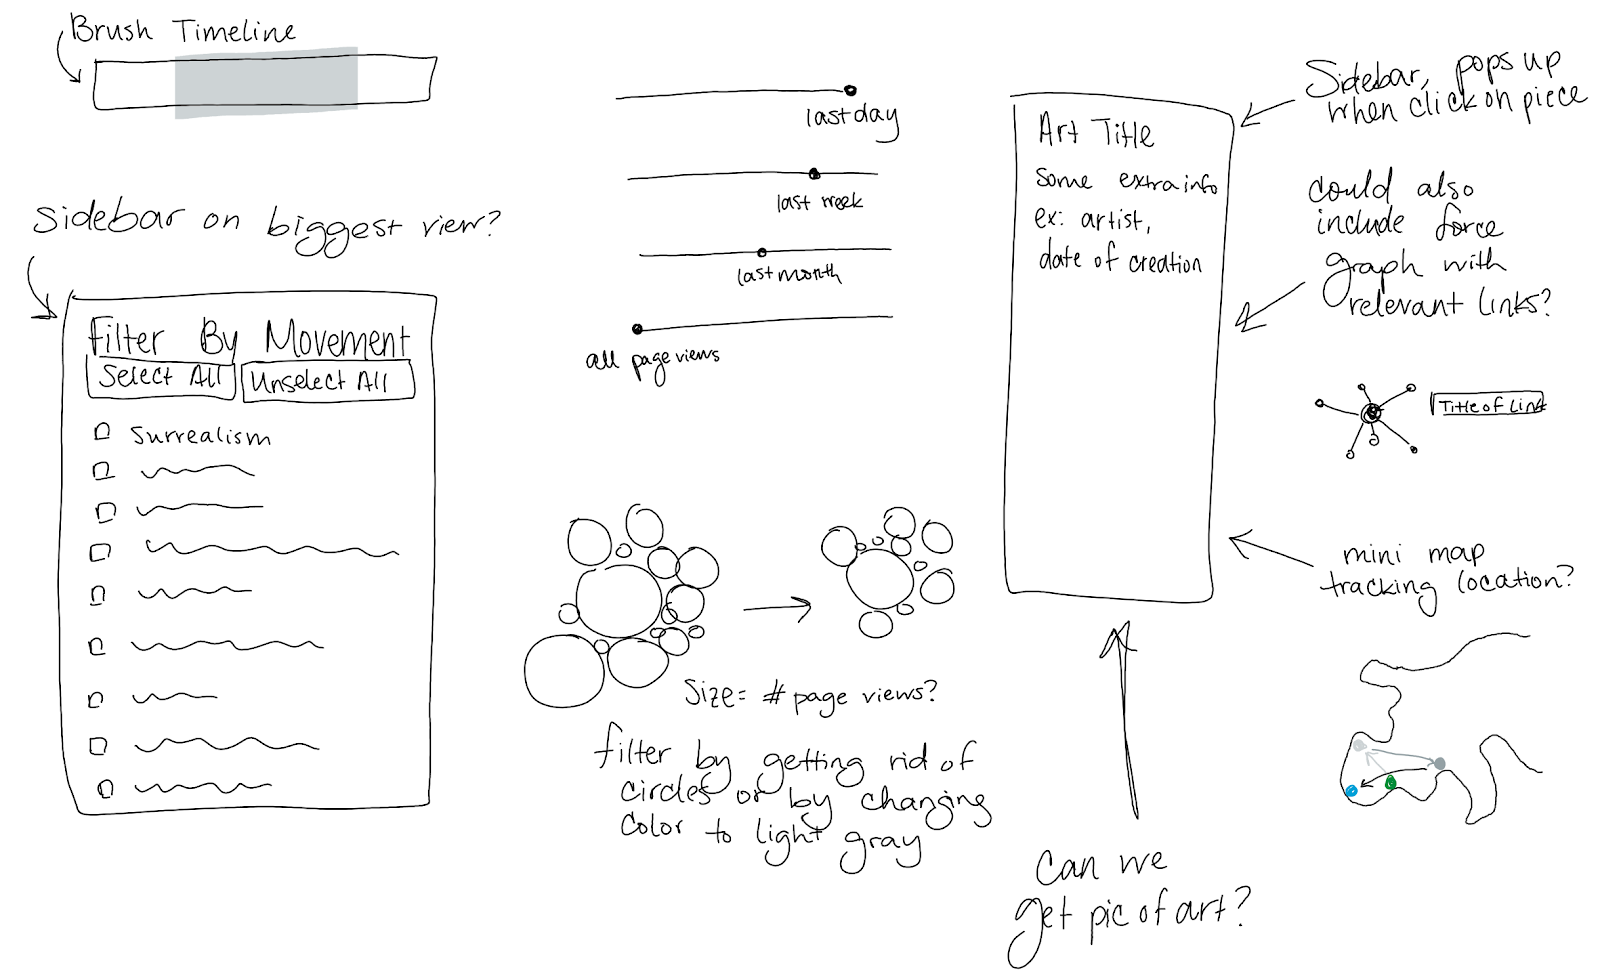 Brush Timeline
Sidebar on biggest view?
Filter By Movement
Select All
Unselect All
Surrealism
last day
last week
last month
all page views
Size= # page views?
filter by getting rid of
circles or by changing
color to light gray
Art Title
Some extra info
ex: artist,
date of creation
Sidebar, pops up
when click on piece
could also
include force
graph with
relevant links?
Title of Link
mini map
tracking location?
Can we
get pic of art?